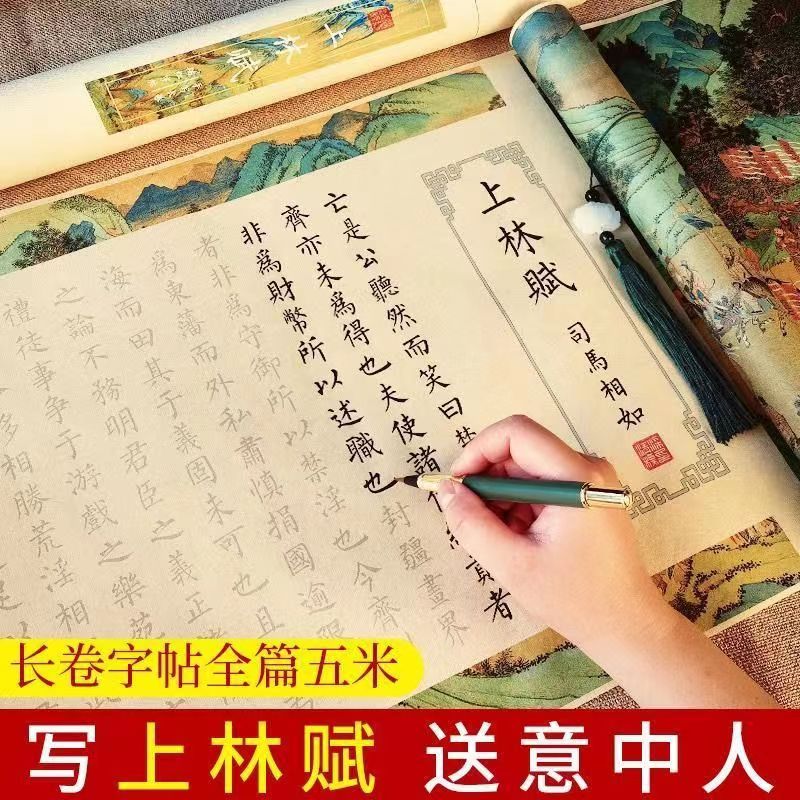 上林賦
上林賦
司馬相如
亡是公聽然而笑曰
齊亦未爲得也夫使諸貢者
非爲財幣所以述職也封疆畫界
者非爲守御所以禁淫也今齊
爲東藩而外私肅慎捐國逾
海而田其于義固未可也且
之論不務明君臣之義正
禮徒事爭于游戲之樂苑
相勝荒淫相
长卷字帖全篇五米
写上林赋 送意中人